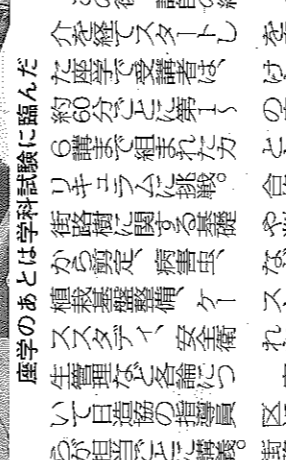 座学のあとは学科試験に臨んだ
介を経てスタートし
た座学で受講者は、
約60分ごとに第1〜
6講まで組まれたカ
リキュラムに挑戦。
街路樹に関する基礎
から剪定、病害虫、
植栽基盤整備、ケー
ススタディ、安全衛
生管理など各論につ
いて日造協の指導員
らが担当ごとに講義。